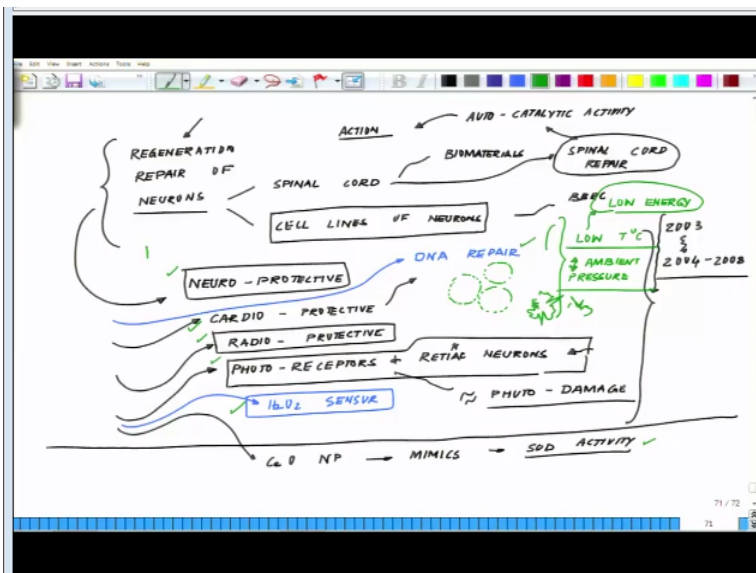 Edit View Insert Actions Tools Help
ACTION
AUTO-CATALYTIC ACTIVITY
REGENERATION
REPAIR OF
NEURONS
SPINAL CORD
BIOMATERIALS
SPINAL CORD
REPAIR
CELL LINES OF NEURONS
LOW ENERGY
LOW T°C
AMBIENT
PRESSURE
2003
2004-2008
DNA REPAIR
NEURO-PROTECTIVE
CARDIO-PROTECTIVE
RADIO-PROTECTIVE
PHOTO-RECEPTORS + NEURONS
≈ PHOTO-DAMAGE
H2O2 SENSUR
CeO NP → MIMICS → SOD ACTIVITY
71 / 72
71